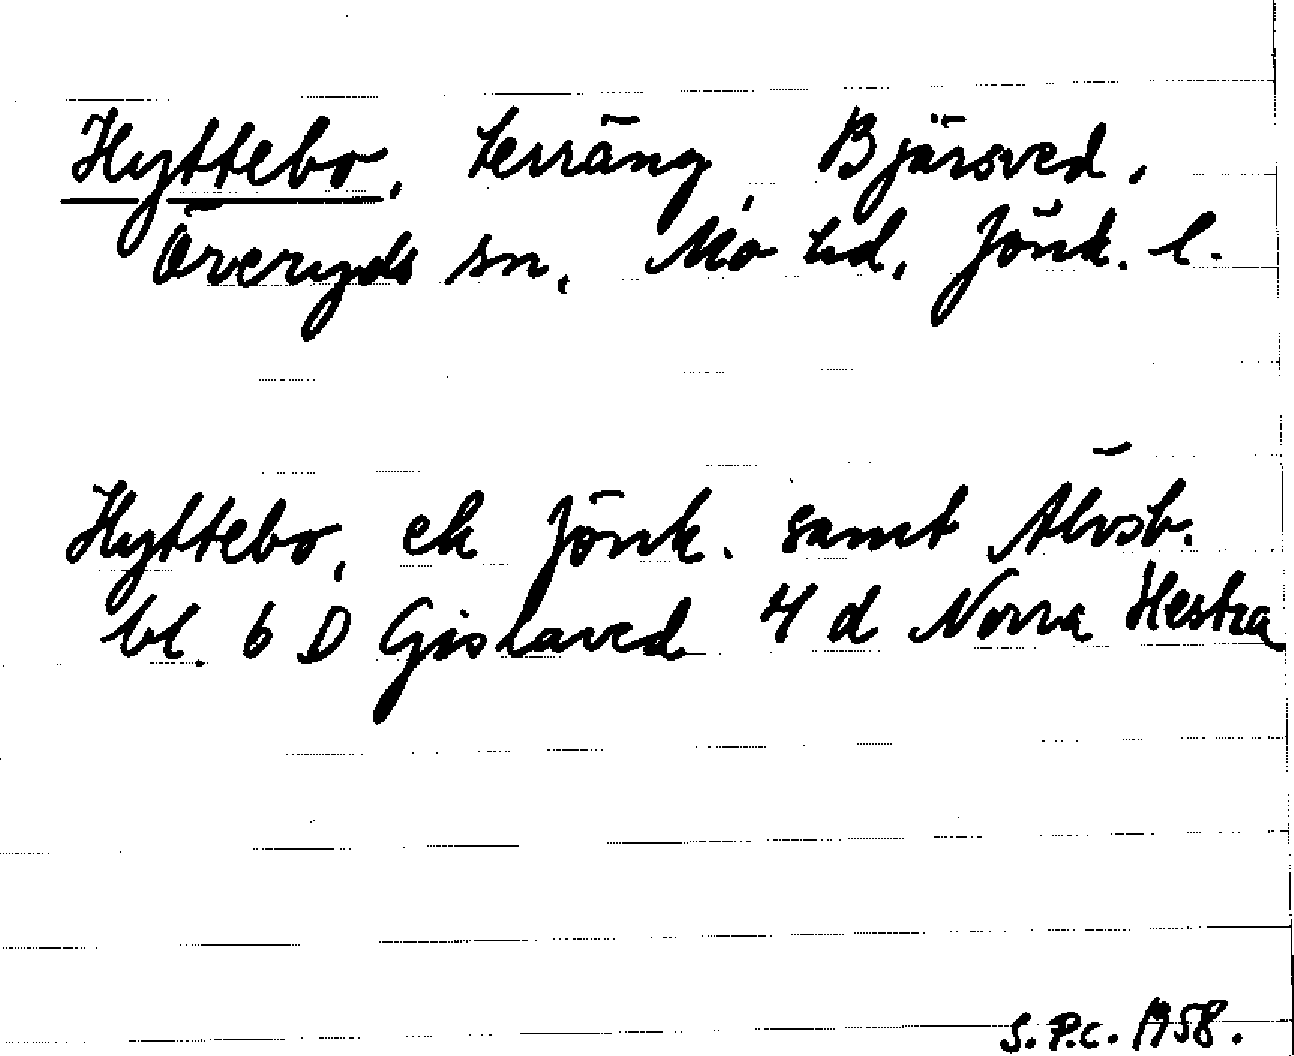 Hyttebo, terräng, Bjärsved,
Öreryds sn, Mo hd, Jönk. l.
Hyttebo, ek Jönk. samt Älvsb.
bl. 6 D Gislaved 4 d Norra Hestra
S.P.C. 1958.